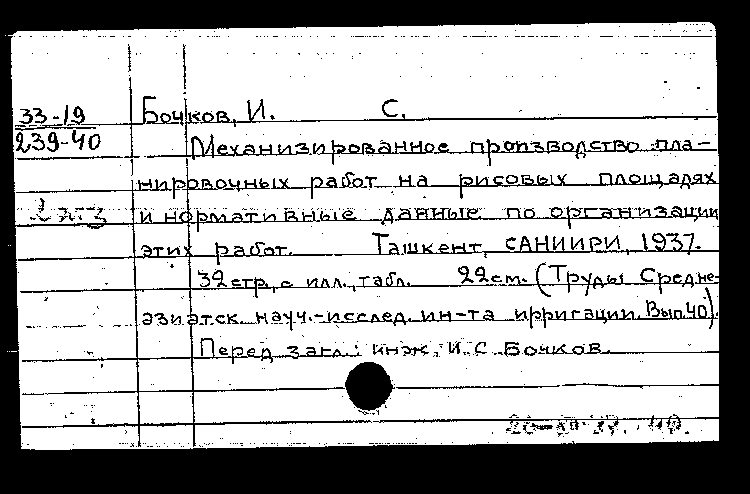 33-19
239-40
Бочков, И. С.
Механизированное производство пла-
нировочных работ на рисовых площадях
2 экз
и нормативные данные по организации
этих работ. Ташкент, САНИИРИ, 1937.
32 стр, с илл., табл. 22 см. (Труды Средне-
азиатск. науч.-исслед. ин-та ирригации. Вып. 40).
Перед загл.: инж. И. С. Бочков.